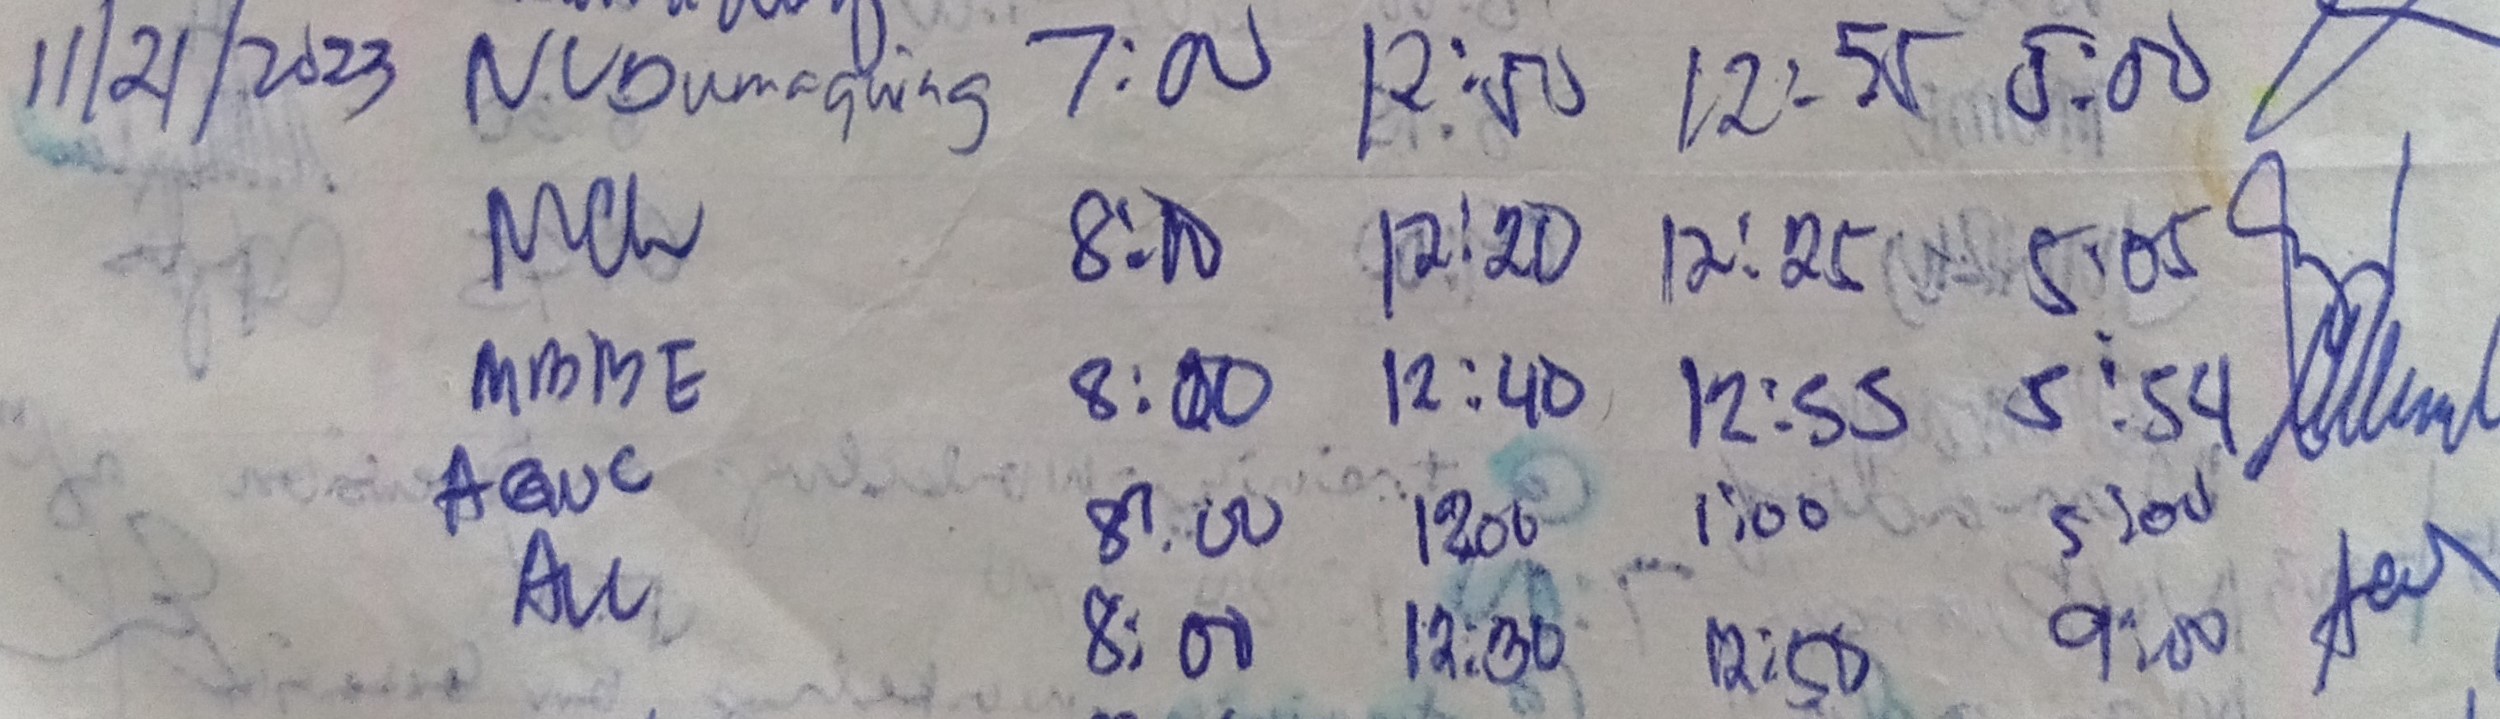 11/21/2023 NVDumaquing 7:00 12:50 12:55 5:00
8:10 12:20 12:25 5:05
MBBE 8:00 12:40 12:55 5:54
AGUC 8:00 1200 1:00 5:00
8:00 12:30 12:50 9:00